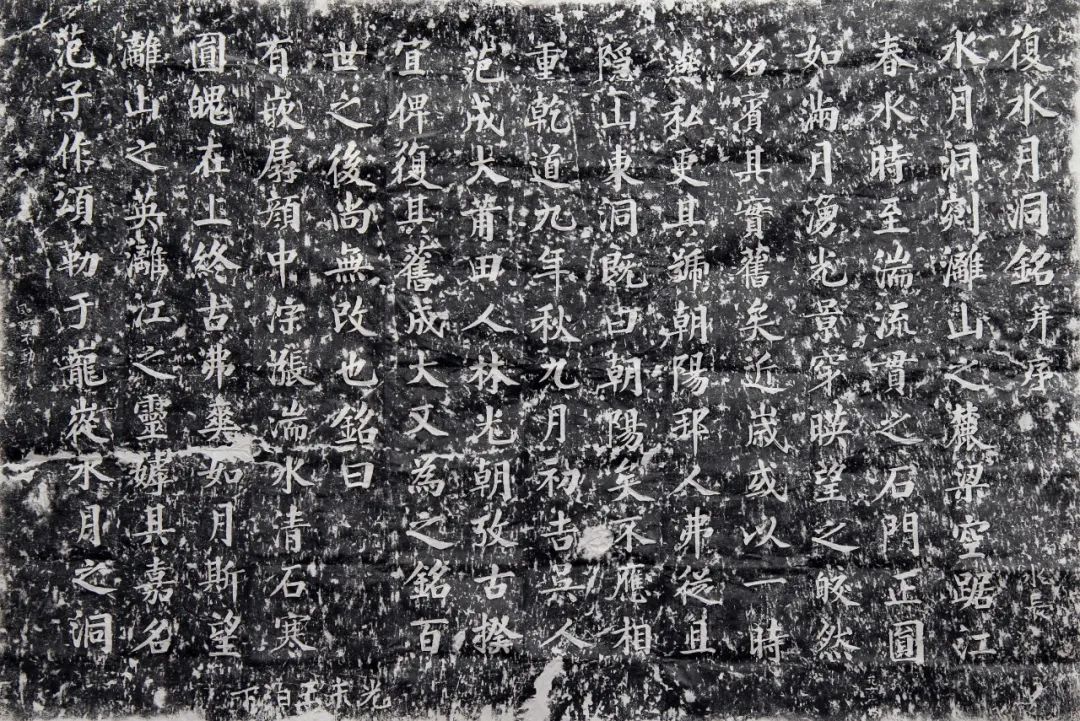 復水月洞銘并序
水月洞剜灕山之麓梁空踞江
春水時至湍流貫之石門正圓
如滿月湧光景穿映望之皎然
名實其實舊矣近歲或以一時
燕私更其號朝陽邦人弗從且
隠山東洞既曰朝陽矣不應相
重乾道九年秋九月初吉吳人
范成大莆田人林光朝攷古揆
宜俾復其舊成大又為之銘百
世之後尚無改也銘曰
有嵌孱顔中淙漲湍水清石寒
圓魄在上終古弗爽如月斯望
灕山之英灕江之靈嫭其嘉名
范子作頌勒于巃嵸水月之洞